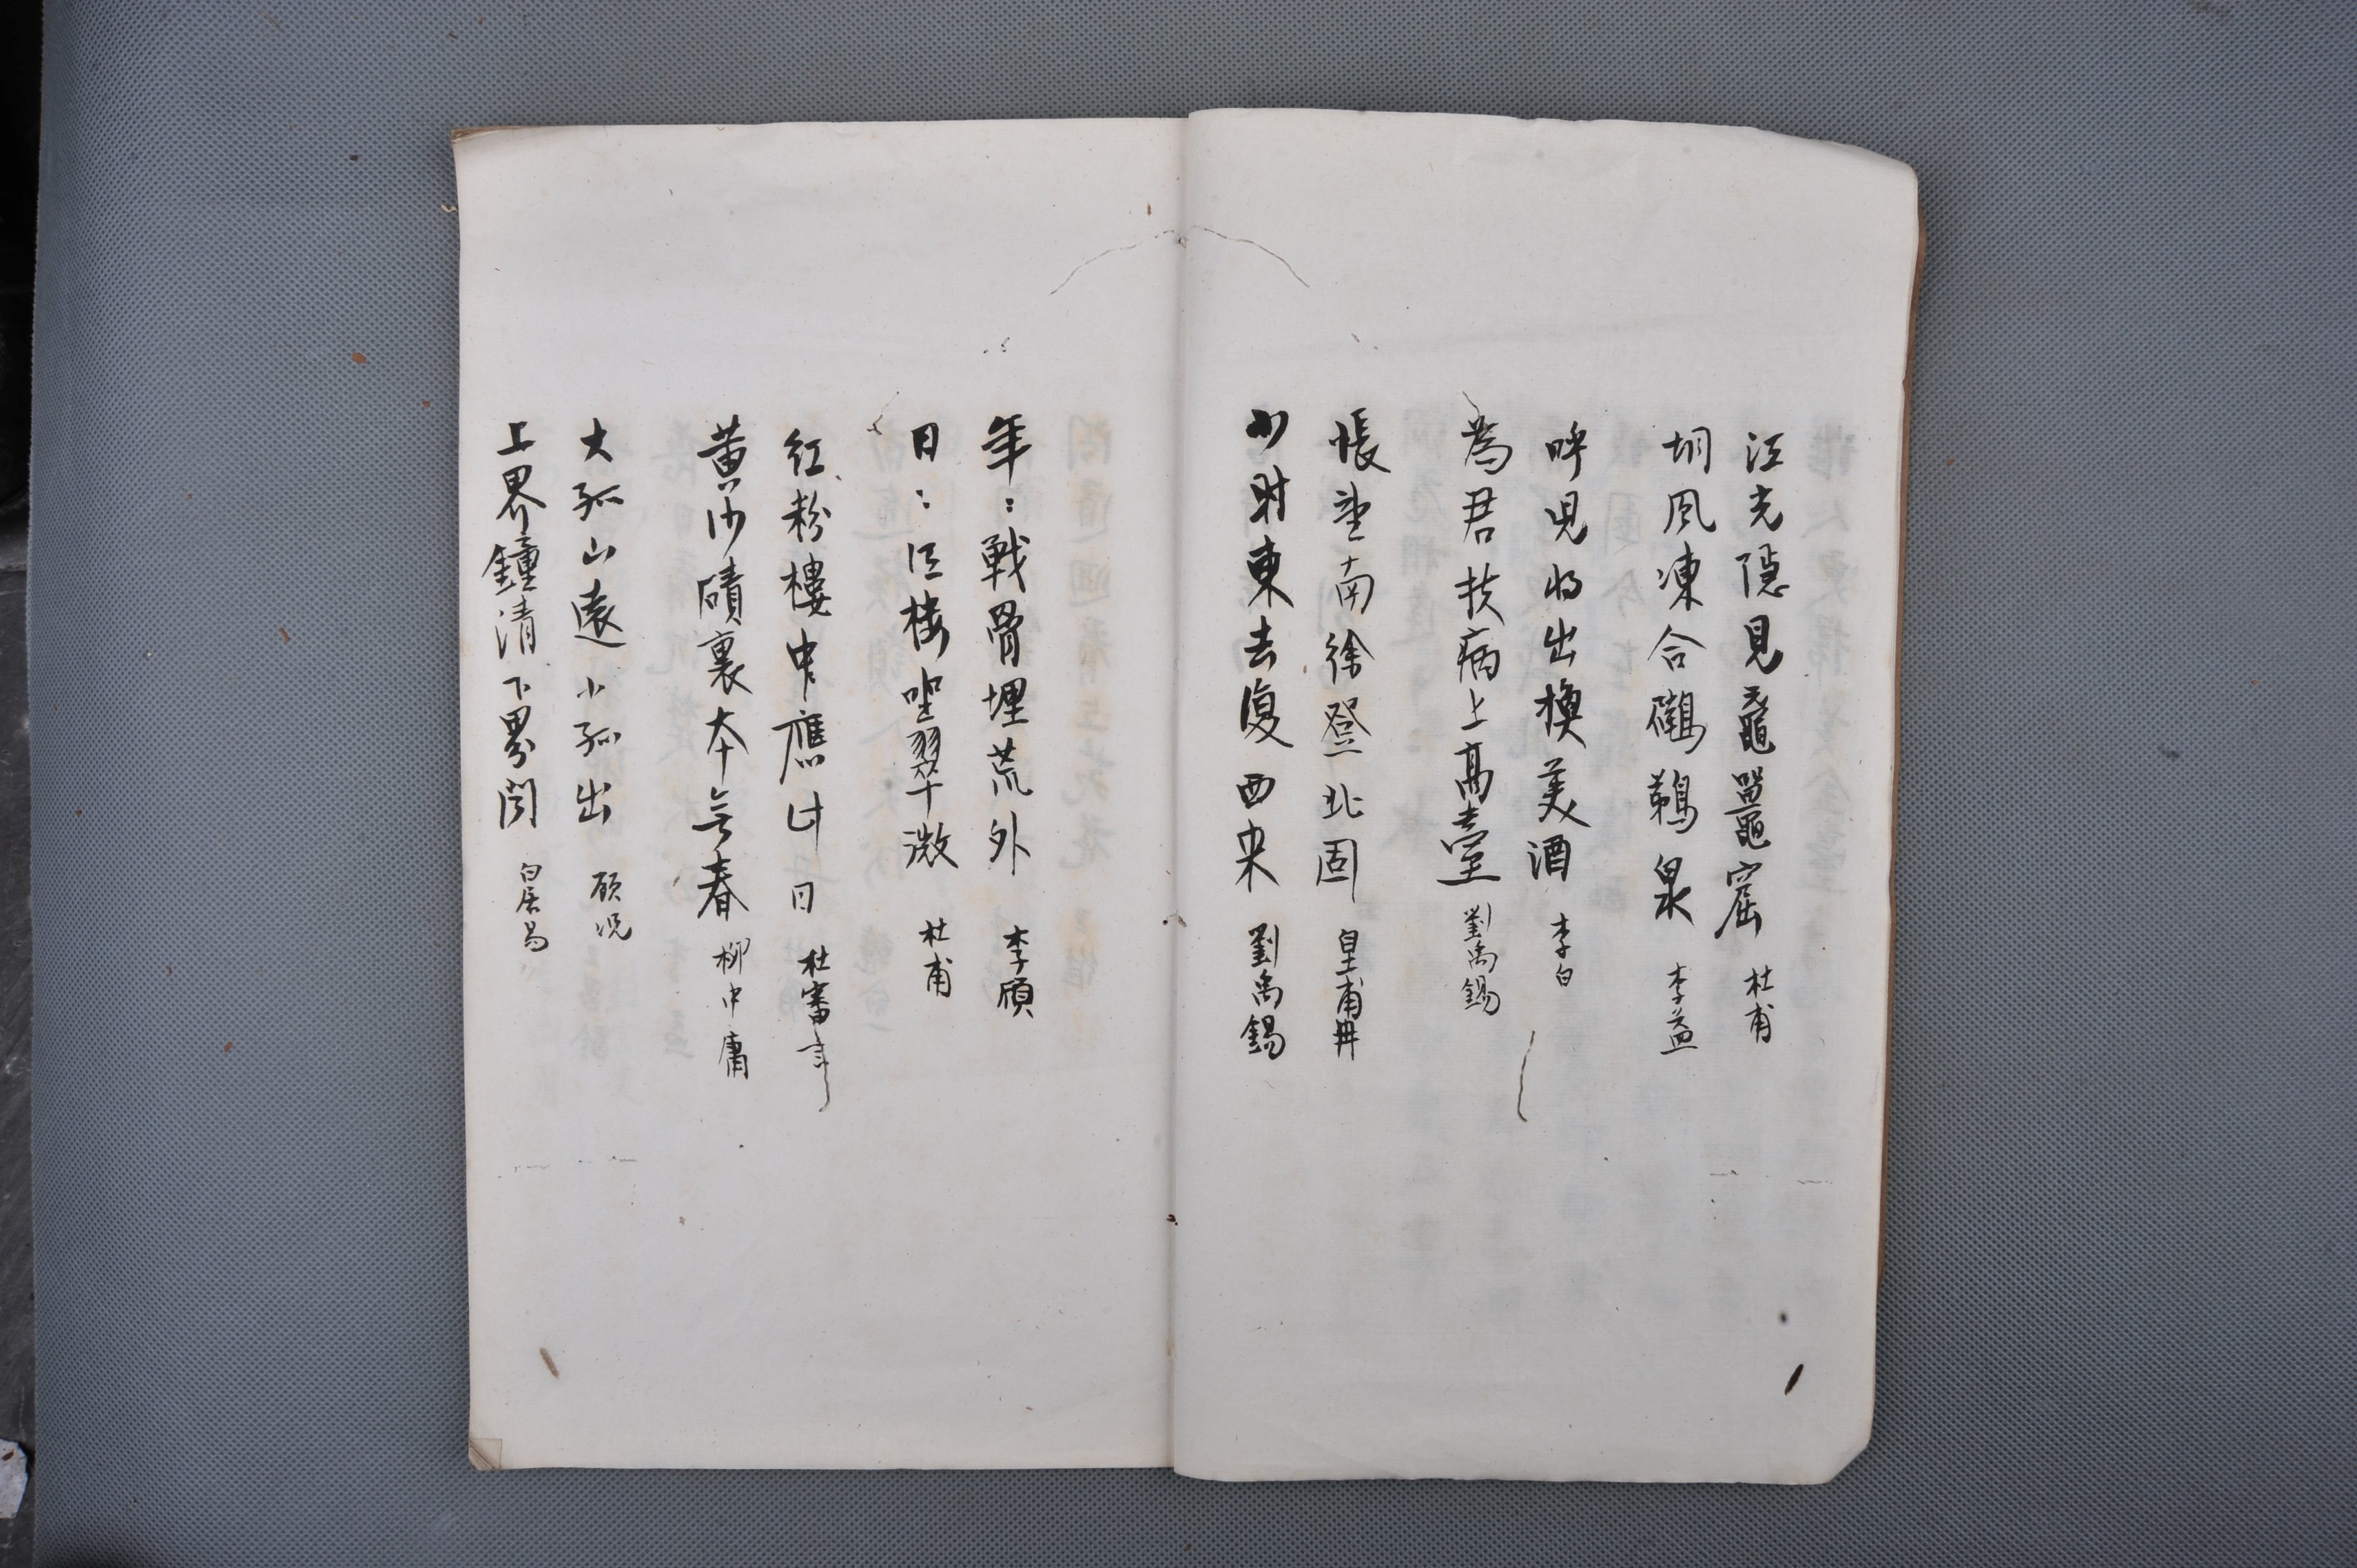 江光隱見黿鼉窟 杜甫
胡風凍合鸊鵜泉 李益
呼児将出換美酒 李白
為君扶病上高臺 劉禹錫
悵望南徐登北固 皇甫冉
少时東去復西来 劉禹錫
年:戰骨埋荒外 李頎
日:江楼坐翠微 杜甫
紅粉樓中應计日 杜審言
黄沙磧裏本无春 柳中庸
大孤山遠小孤出 顧况
上界鐘清下界聞 白居易